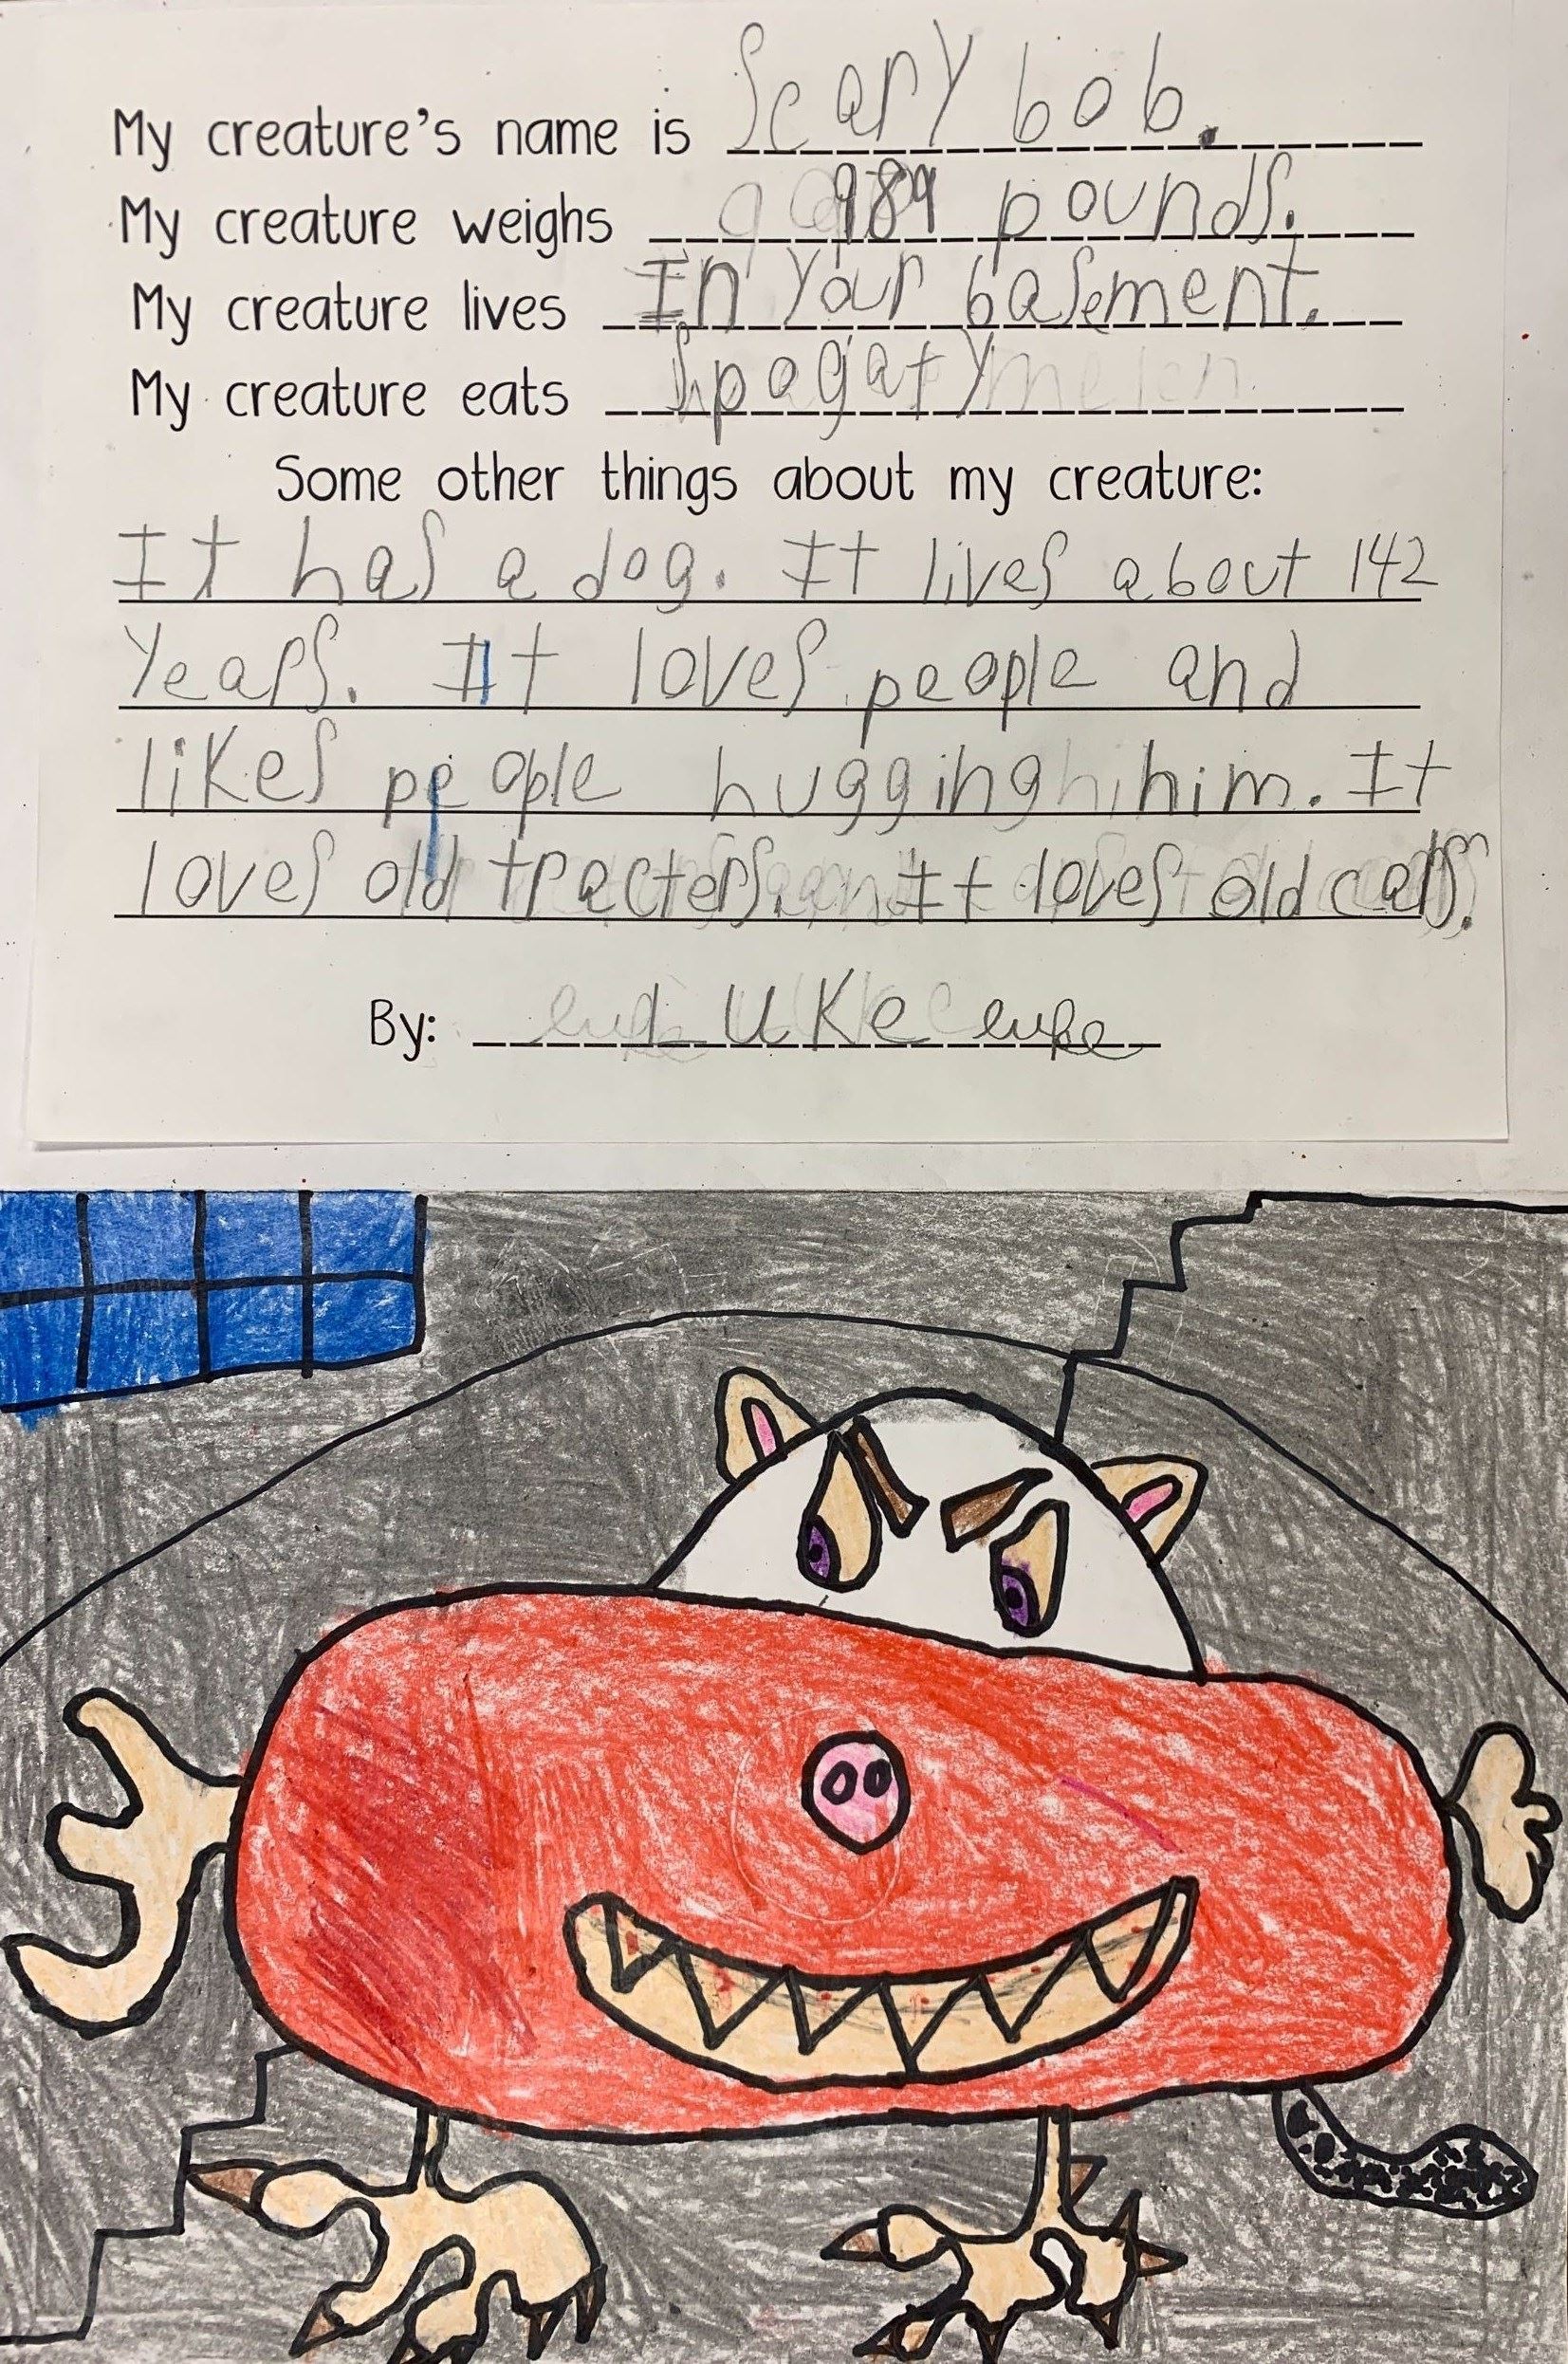 My creature's name is Scary bob.
My creature weighs 989 pounds.
My creature lives In your basement.
My creature eats Spagaty
Some other things about my creature:
It has a dog. It lives about 142
years. It loves people and
likes people hugging him. It
loves old tracters. It loves old cars.
By: luke luke